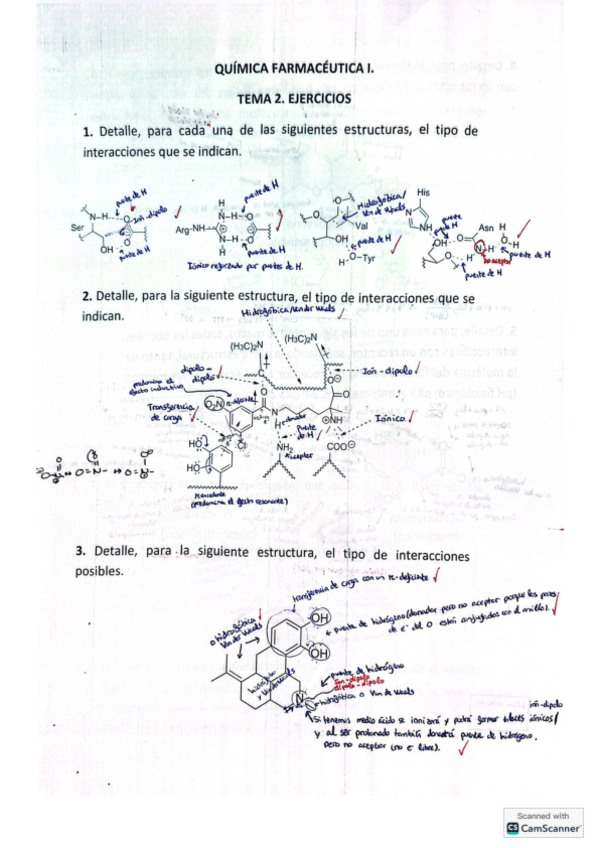 QUÍMICA FARMACÉUTICA I.
TEMA 2. EJERCICIOS
1. Detalle, para cada una de las siguientes estructuras, el tipo de
interacciones que se indican.
puente de H
Ion-dipolo
N-H
Ser
OH
puente de H
puente de H
H
N-H
Arg-NH
N-H
H
puente de H
Iónico reforzado por puentes de H.
Hidrofóbica/
Van der Waals
Val
OH
puente de H
H-O-Tyr
His
N
NH
puente
de H
OH
Asn
H
O-H
N-H
no aceptor
puente de H
puente de H
2. Detalle, para la siguiente estructura, el tipo de interacciones que se
indican.
Hidrofóbica/Van der Waals
(H3C)2N
(H3C)2N
dipolo-
dipolo
Ion-dipolo
predomina el
efecto inductivo
Transferencia
de carga
O2N
Cl
O
H
dador
NH
Iónico
Puente
de H
HO
HO
NH2
Aceptor
COO
(predomina el efecto resonante)
3. Detalle, para la siguiente estructura, el tipo de interacciones
posibles.
transferencia de carga con un π-deficiente
hidrofóbica
Van der Waals
OH
OH
puente de hidrógeno (donador pero no aceptor porque los pares
de e⁻ del O están conjugados con el anillo).
puente de hidrógeno
Ion-dipolo
dipolo-dipolo
hidrofóbica o Van der Waals
N
ión-dipolo
Si tenemos medio ácido se ionizará y podrá formar enlaces iónicos/
y al ser protonado también donará puente de hidrógeno,
pero no aceptar (no e⁻ libre).
Scanned with
CS CamScanner